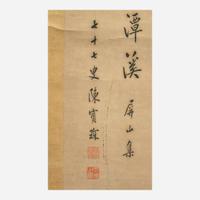 潭溪
屏山集
七十七叟陳寶琛